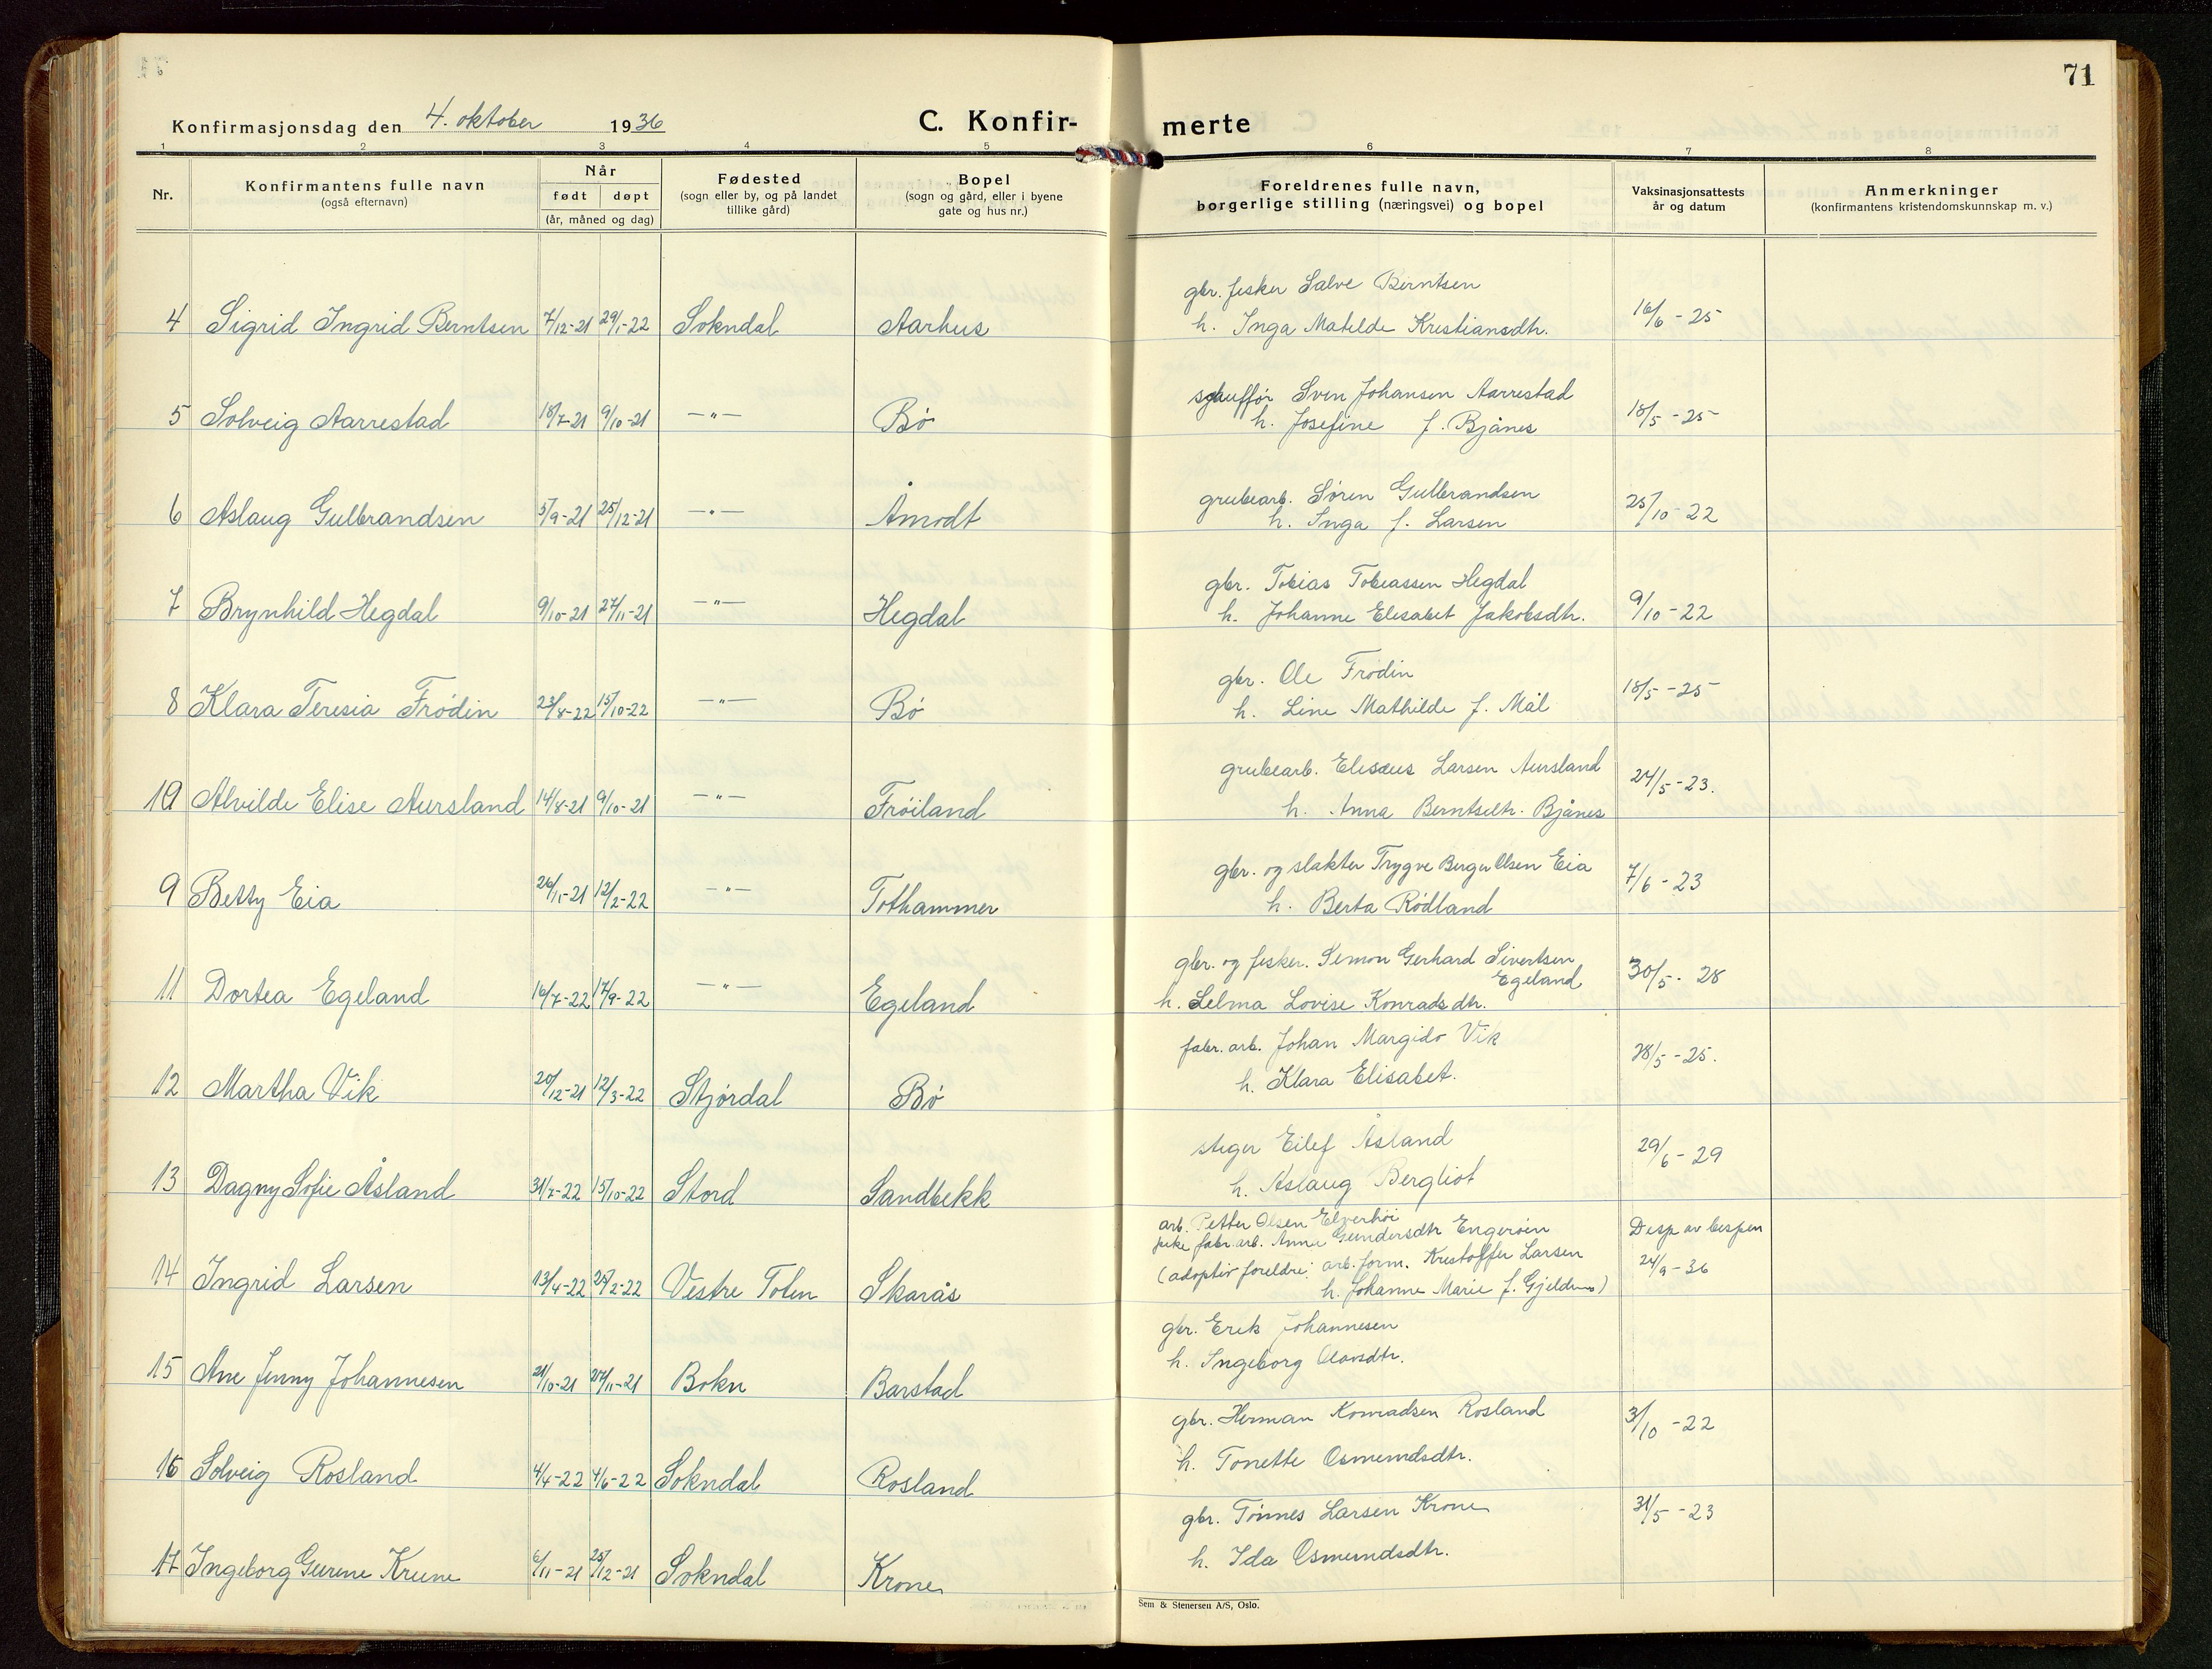 71
Konfirmasjonsdag den 4. oktober 1936
C. Konfir- merte
1 2 3 4 5 6 7 8
Nr.
Konfirmantens fulle navn
(også efternavn)
Når
født døpt
(år, måned og dag)
Fødested
(sogn eller by, og på landet
tillike gård)
Bopel
(sogn og gård, eller i byene
gate og hus nr.)
Foreldrenes fulle navn,
borgerlige stilling (næringsvei) og bopel
Vaksinasjonsattests
år og datum
Anmerkninger
(konfirmantens kristendomskunnskap m. v.)
gbr. fisker Salve Berntsen
4 Sigrid Ingrid Berntsen 7/12-21 29/1-22 Sokndal Aarhus h. Inga Matilde Kristiansdtr. 16/6-25
sjauffør Sven Johansen Aarrestad
5 Solveig Aarrestad 18/7-21 9/10-21 —"— Bø h. Josefine f. Bjånes 18/5-25
grubearb. Søren Gulbrandsen
6 Aslaug Gulbrandsen 5/9-21 25/12-21 —"— Åmodt h. Inga f. Larsen 25/10-22
gbr. Tobias Tobiassen Hegdal
7 Brynhild Hegdal 9/10-21 27/11-21 —"— Hegdal h. Johanne Elisabet Jakobsdtr. 9/10-22
gbr. Ole Frødin
8 Klara Teresia Frødin 23/8-22 15/10-22 —"— Bø h. Line Mathilde f. Mål 18/5-25
grubearb. Elisæus Larsen Aursland
10 Alvilde Elise Aursland 14/8-21 9/10-21 —"— Frøiland h. Anna Berntsdtr. Bjånes 24/5-23.
gbr. og slakter Trygve Berger Olsen Eia
9 Betty Eia 26/11-21 12/2-22 —"— Tothammer h. Berta Rødland 7/6-23
gbr. og fisker. Simon Gerhard Sivertsen
Egeland
11 Dortea Egeland 16/7-22 17/9-22 —"— Egeland h. Selma Lovise Konradsdtr. 30/5-28
fabr. arb. Johan Margido Vik
12 Martha Vik 20/12-21 12/3-22 Stjørdal Bø h. Klara Elisabet. 18/5-25.
stiger Eilef Åsland
13 Dagny Sofie Åsland 31/7-22 15/10-22 Stord Sandbekk h. Aslaug Bergliot 29/6-29
arb. Petter Olsen Elverhøi
pike fabr. arb. Anna Gundersdtr Engerøien
(adoptiv foreldre: arb. form. Kristoffer Larsen
Disp av bispen
14 Ingrid Larsen 13/4-22 25/2-22 Vestre Toten Skarås h. Johanne Marie f. Gjeldnes) 24/9-36
gbr. Erik Johannesen
15 Ane Jenny Johannesen 21/10-21 27/11-21 Bokn Barstad h. Ingeborg Olavsdtr.
gbr. Herman Konradsen Rosland
16 Solveig Rosland 4/4-22 4/6-22 Sokndal Rosland h. Tonette Osmundsdtr. 3/10-22
gbr. Tønnes Larsen Krone
17 Ingeborg Gurine Krune 6/11-21 25/12-21 Sokndal Krone h. Ida Osmundsdtr. 31/5-23
Sem & Stenersen A/S, Oslo.